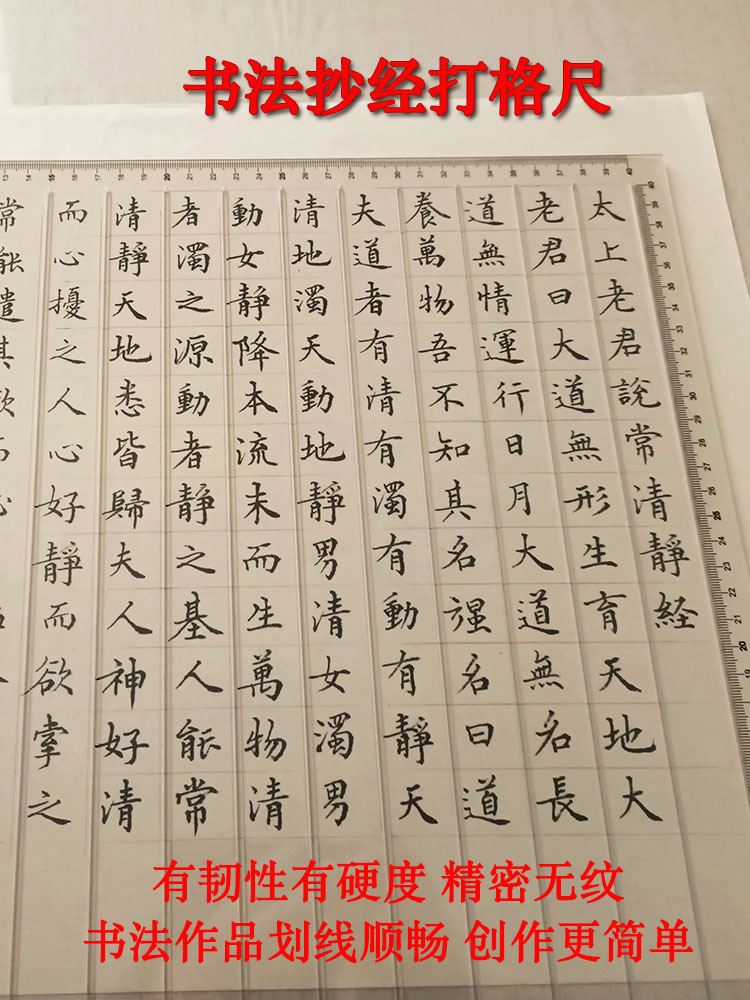 书法抄经打格尺
太上老君說常清靜経
老君曰大道無形生育天地大
道無情運行日月大道無名長
養萬物吾不知其名强名曰道
夫道者有清有濁有動有靜天
清地濁天動地靜男清女濁男
動女靜降本流末而生萬物清
者濁之源動者靜之基人能常
清靜天地悉皆歸夫人神好清
而心擾之人心好靜而欲掌之
常能遣其欲而心
有韧性有硬度 精密无纹
书法作品划线顺畅 创作更简单